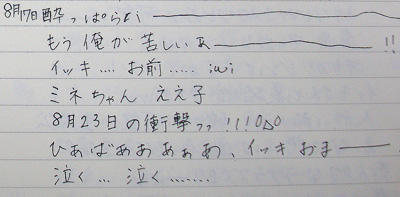 8月17日酔っぱらい――――
もう俺が苦しいぁ――――!!
イッキ.... お前..... iωi
ミネちゃん ええ子
8月23日の衝撃ッッ!!!OΔO
ひぁばああぁぁあ、イッキおま――
泣く... 泣く.......